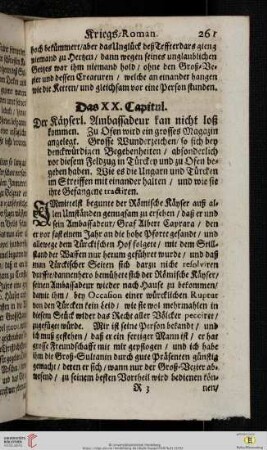 Kriegs-Roman. 261
hoch bekümmert/ aber das Unglück deß Tefterdars gieng
niemand zu Hertzen/ dann wegen seines unglaublichen
Geitzes war ihm niemand hold / ohne den Groß-Ve-
zier und dessen Creaturen / welche an einander hangen
wie die Ketten/ und gleichsam vor eine Person stunden.
Das XX. Capitul.
Der Käyserl. Ambassadeur kan nicht loß
kommen. Zu Ofen wird ein grosses Magazin
angelegt. Grosse Wunderzeichen/ so sich bey
denckwürdigen Begebenheiten / absonderlich
vor diesem Feldzug in Türckey und zu Ofen bege-
ben haben. Wie es die Ungarn und Türcken
im Streiffen mit einander halten / und wie sie
ihre Gefangene tractiren.
Immittelst begunte der Römische Käyser auß al-
len Umständen genugsam zu ersehen / daß er und
sein Ambassadeur / Graf Albert Caprara / den
er vor fast einem Jahr an die hohe Pforte gesandt / und
allewege dem Türckischen Hof folgete / mit dem Still-
stand der Waffen nur herum geführet wurde / und daß
man Türckischer Seiten sich darzu nicht
dürffte/ dannenhero bemühete sich der Römische Käyser/
seinen Ambassadeur wieder nach Hause zu bekommen/
damit ihm / bey Occasion einer würcklichen Ruptur
von den Türcken kein Leid / wie sie wol mehrmahlen in
diesem Stück wider das Recht aller Völcker
zugefüget würde. Mir ist seine Person bekandt / und
ich muß gestehen/ daß er ein fertiger Mann ist / er hat
grosse Freundschafft mit mir gepflogen / und ich habe
ihm die Groß-Sultanin durch gute Präsenten günstig
gemacht / deren er sich / wann nur der Groß-Vezier ab-
wesend / zu seinem besten Vortheil wird bedienen kön-
R 3 nen/
© Universitätsbibliothek Heidelberg